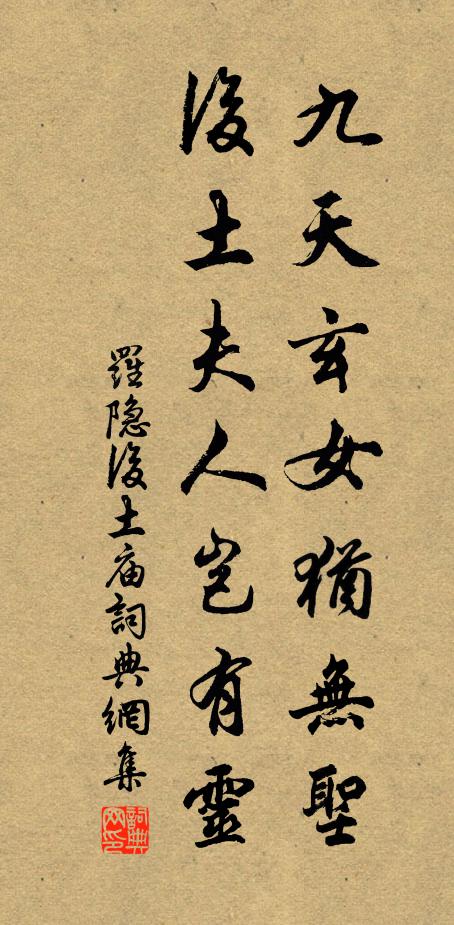 九天玄女猶無聖
後土夫人豈有靈
羅隐後土庙詞典網集
詞典网印